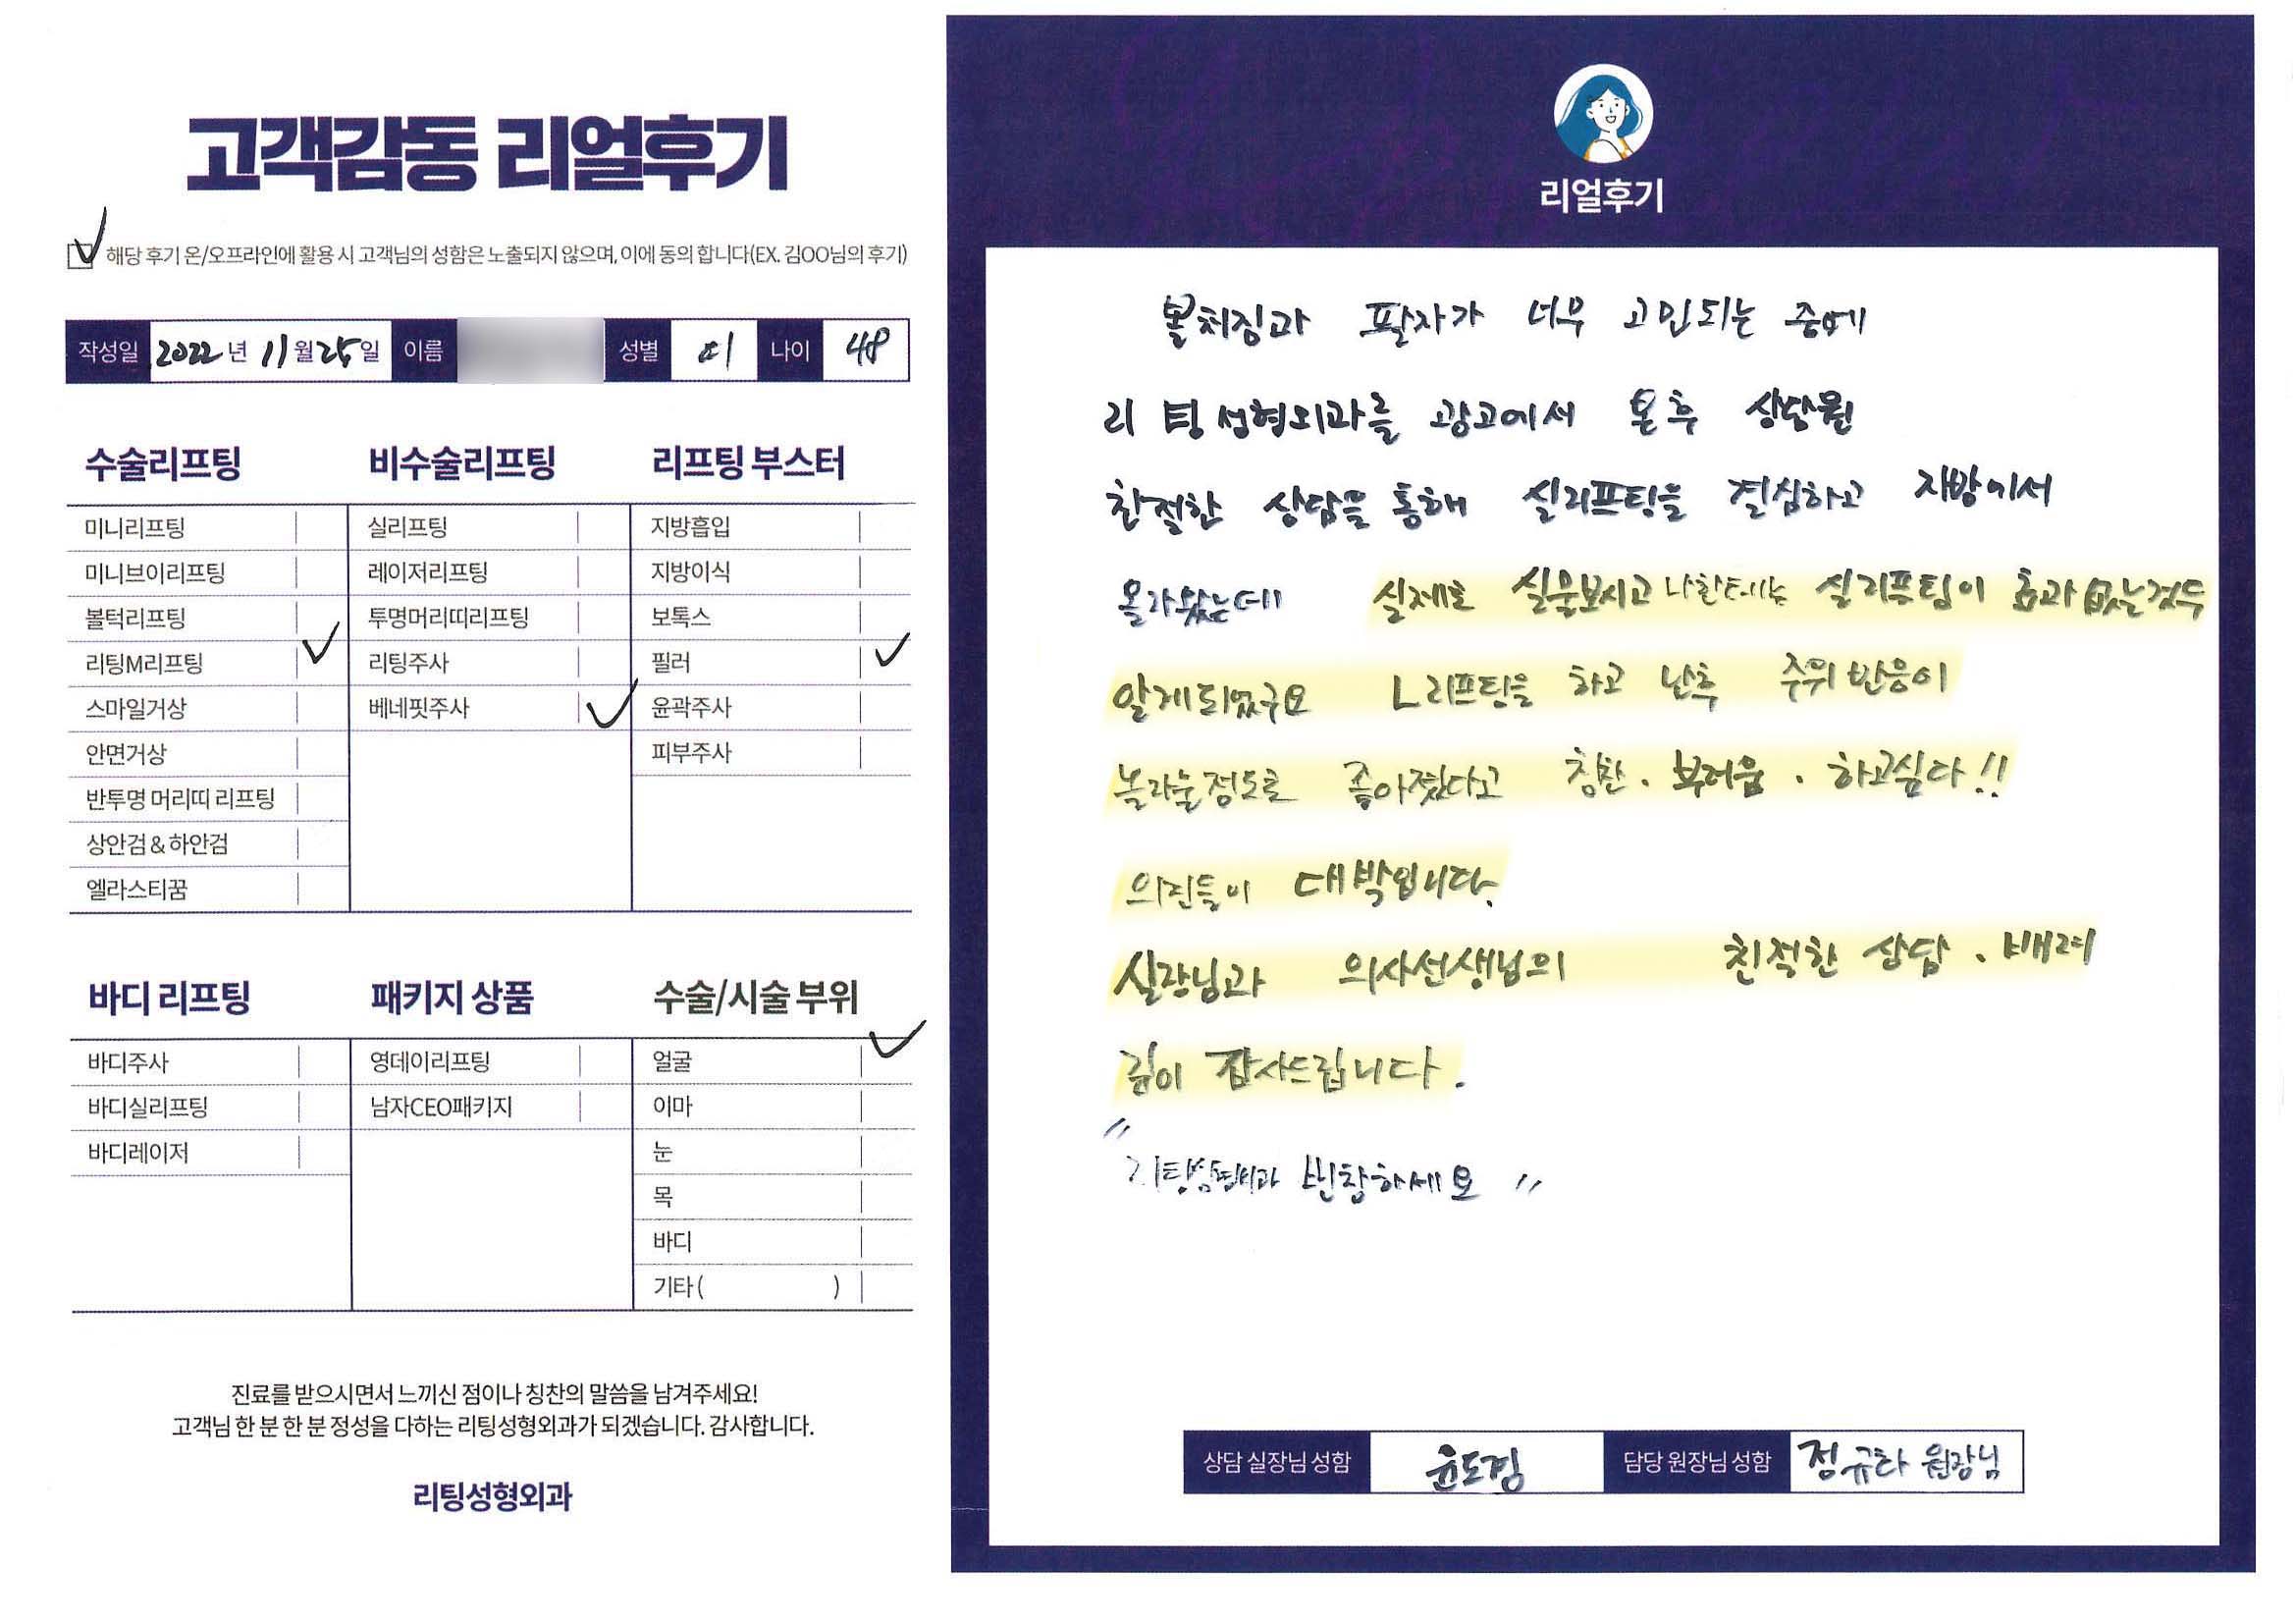 고객감동 리얼후기
해당 후기 온/오프라인에 활용 시 고객님의 성함은 노출되지 않으며, 이에 동의 합니다(EX. 김OO님의 후기)
작성일 2022년 11월 25일 이름 성별 여 나이 48
수술리프팅
미니리프팅
미니브이리프팅
볼턱리프팅
리팅M리프팅
스마일거상
안면거상
반투명 머리띠 리프팅
상안검 & 하안검
엘라스티꿈
비수술리프팅
실리프팅
레이저리프팅
투명머리띠리프팅
리팅주사
베네핏주사
리프팅 부스터
지방흡입
지방이식
보톡스
필러
윤곽주사
피부주사
바디 리프팅
바디주사
바디실리프팅
바디레이저
패키지 상품
영데이리프팅
남자CEO패키지
수술/시술 부위
얼굴
이마
눈
목
바디
기타( )
진료를 받으시면서 느끼신 점이나 칭찬의 말씀을 남겨주세요!
고객님 한 분 한 분 정성을 다하는 리팅성형외과가 되겠습니다. 감사합니다.
리팅성형외과
리얼후기
볼처짐과 팔자가 너무 고민되는 중에
리팅성형외과를 광고에서 본후 상담원
친절한 상담을 통해 실리프팅을 결심하고 지방에서
올라왔는데 실제로 실물보시고 나한테는 실리프팅이 효과없는것두
알게되었구요 L리프팅을 하고 난후 주위 반응이
놀라울정도로 좋아졌다고 칭찬. 부러움. 하고싶다!!
의진들이 대박입니다.
실장님과 의사선생님의 친적한 상담. 배려
깊이 감사드립니다.
"리팅성형외과 번창하세요"
상담 실장님 성함 윤도경 담당 원장님 성함 정규화 원장님